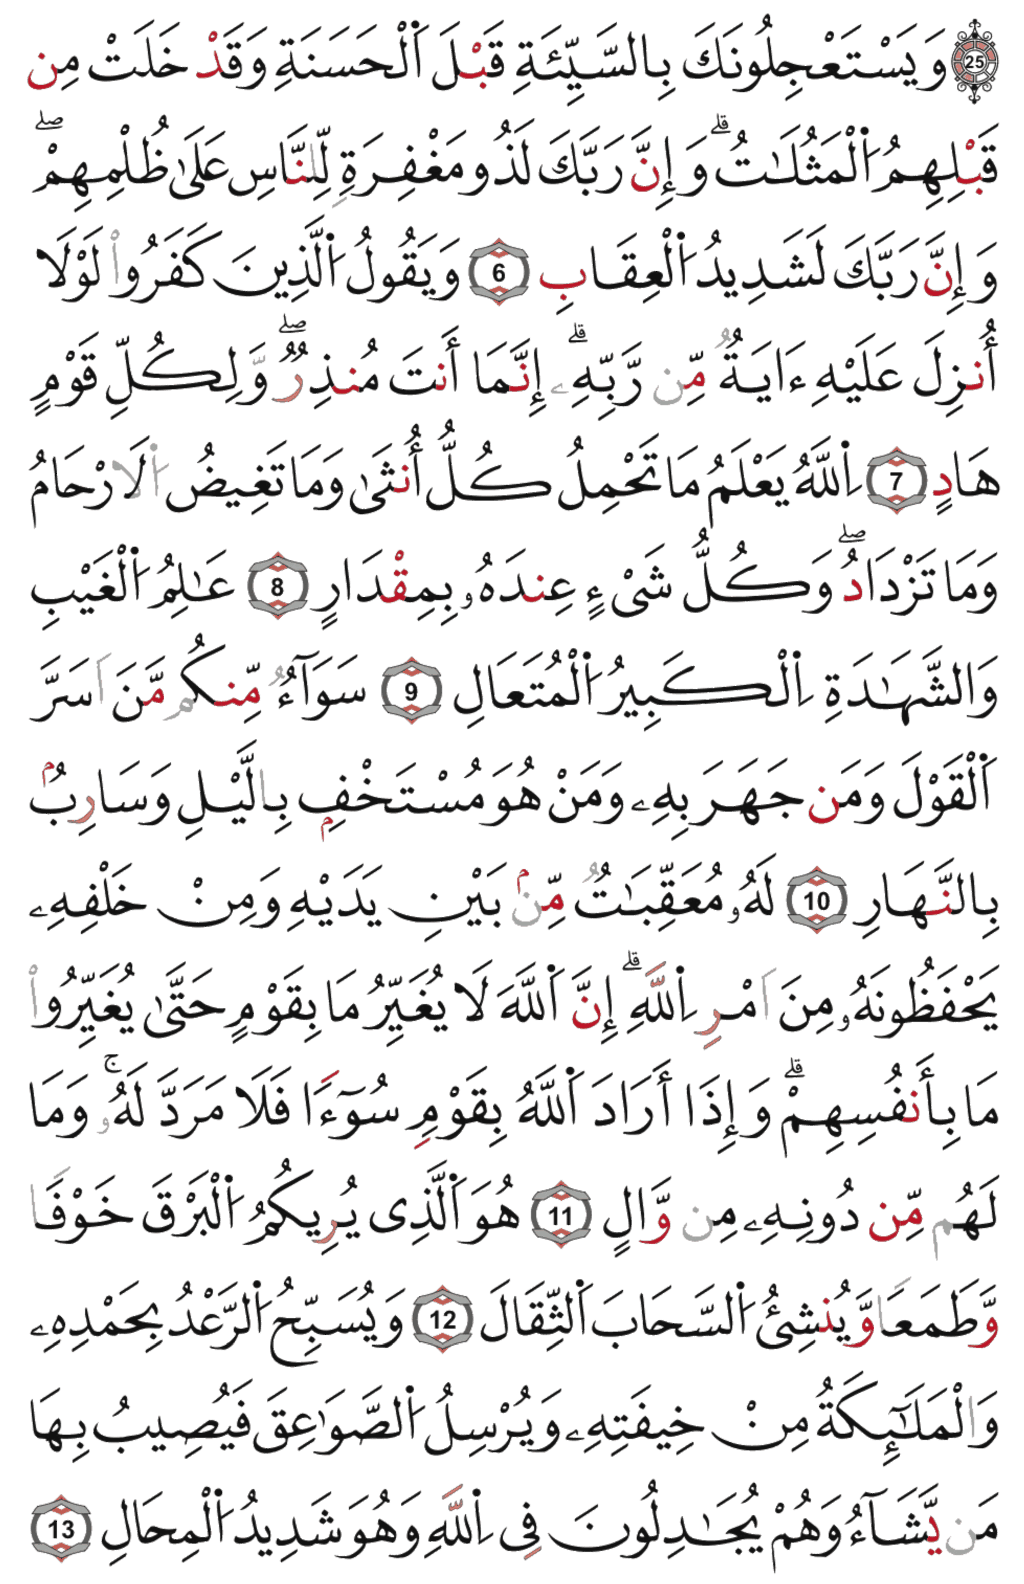 25 وَيَسْتَعْجِلُونَكَ بِالسَّيِّئَةِ قَبْلَ اَ۬لْحَسَنَةِ وَقَدْ خَلَتْ مِن
قَبْلِهِمُ اُ۬لْمَثُلَٰتُۖ وَإِنَّ رَبَّكَ لَذُو مَغْفِرَةٖ لِّلنَّاسِ عَلَىٰ ظُلْمِهِمْۖ
وَإِنَّ رَبَّكَ لَشَدِيدُ اُ۬لْعِقَابِ 6 وَيَقُولُ اُ۬لَّذِينَ كَفَرُواْ لَوْلَا
أُنزِلَ عَلَيْهِ ءَايَةٞ مِّن رَّبِّهِۦۖ إِنَّمَا أَنتَ مُنذِرٞۖ وَلِكُلِّ قَوْمٍ
هَادٍ 7 اِ۬للَّهُ يَعْلَمُ مَا تَحْمِلُ كُلُّ أُنثَىٰ وَمَا تَغِيضُ اُ۬لَارْحَامُ
وَمَا تَزْدَادُۖ وَكُلُّ شَىْءٍ عِندَهُۥ بِمِقْدَارٍ 8 عَٰلِمُ اُ۬لْغَيْبِ
وَالشَّهَٰدَةِ اِ۬لْكَبِيرُ اُ۬لْمُتَعَالِ 9 سَوَآءٞ مِّنكُم مَّنَ اَسَرَّ
اَ۬لْقَوْلَ وَمَن جَهَرَ بِهِۦ وَمَنْ هُوَ مُسْتَخْفِۭ بِالَّيْلِ وَسَارِبُۢ
بِالنَّهَارِ 10 لَهُۥ مُعَقِّبَٰتٞ مِّنۢ بَيْنِ يَدَيْهِ وَمِنْ خَلْفِهِۦ
يَحْفَظُونَهُۥ مِنَ اَمْرِ اِ۬للَّهِۖ إِنَّ اَ۬للَّهَ لَا يُغَيِّرُ مَا بِقَوْمٍ حَتَّىٰ يُغَيِّرُواْ
مَا بِأَنفُسِهِمْۖ وَإِذَا أَرَادَ اَ۬للَّهُ بِقَوْمٖ سُوٓءٗا فَلَا مَرَدَّ لَهُۥۚ وَمَا
لَهُم مِّن دُونِهِۦ مِن وَّالٍ 11 هُوَ اَ۬لَّذِى يُرِيكُمُ اُ۬لْبَرْقَ خَوْفٗا
وَّطَمَعٗا وَّيُنشِئُ اُ۬لسَّحَابَ اَ۬لثِّقَالَ 12 وَيُسَبِّحُ اُ۬لرَّعْدُ بِحَمْدِهِۦ
وَالْمَلَٰٓئِكَةُ مِنْ خِيفَتِهِۦ وَيُرْسِلُ اُ۬لصَّوَٰعِقَ فَيُصِيبُ بِهَا
مَن يَّشَآءُ وَهُمْ يُجَٰدِلُونَ فِى اِ۬للَّهِ وَهُوَ شَدِيدُ اُ۬لْمِحَالِ 13